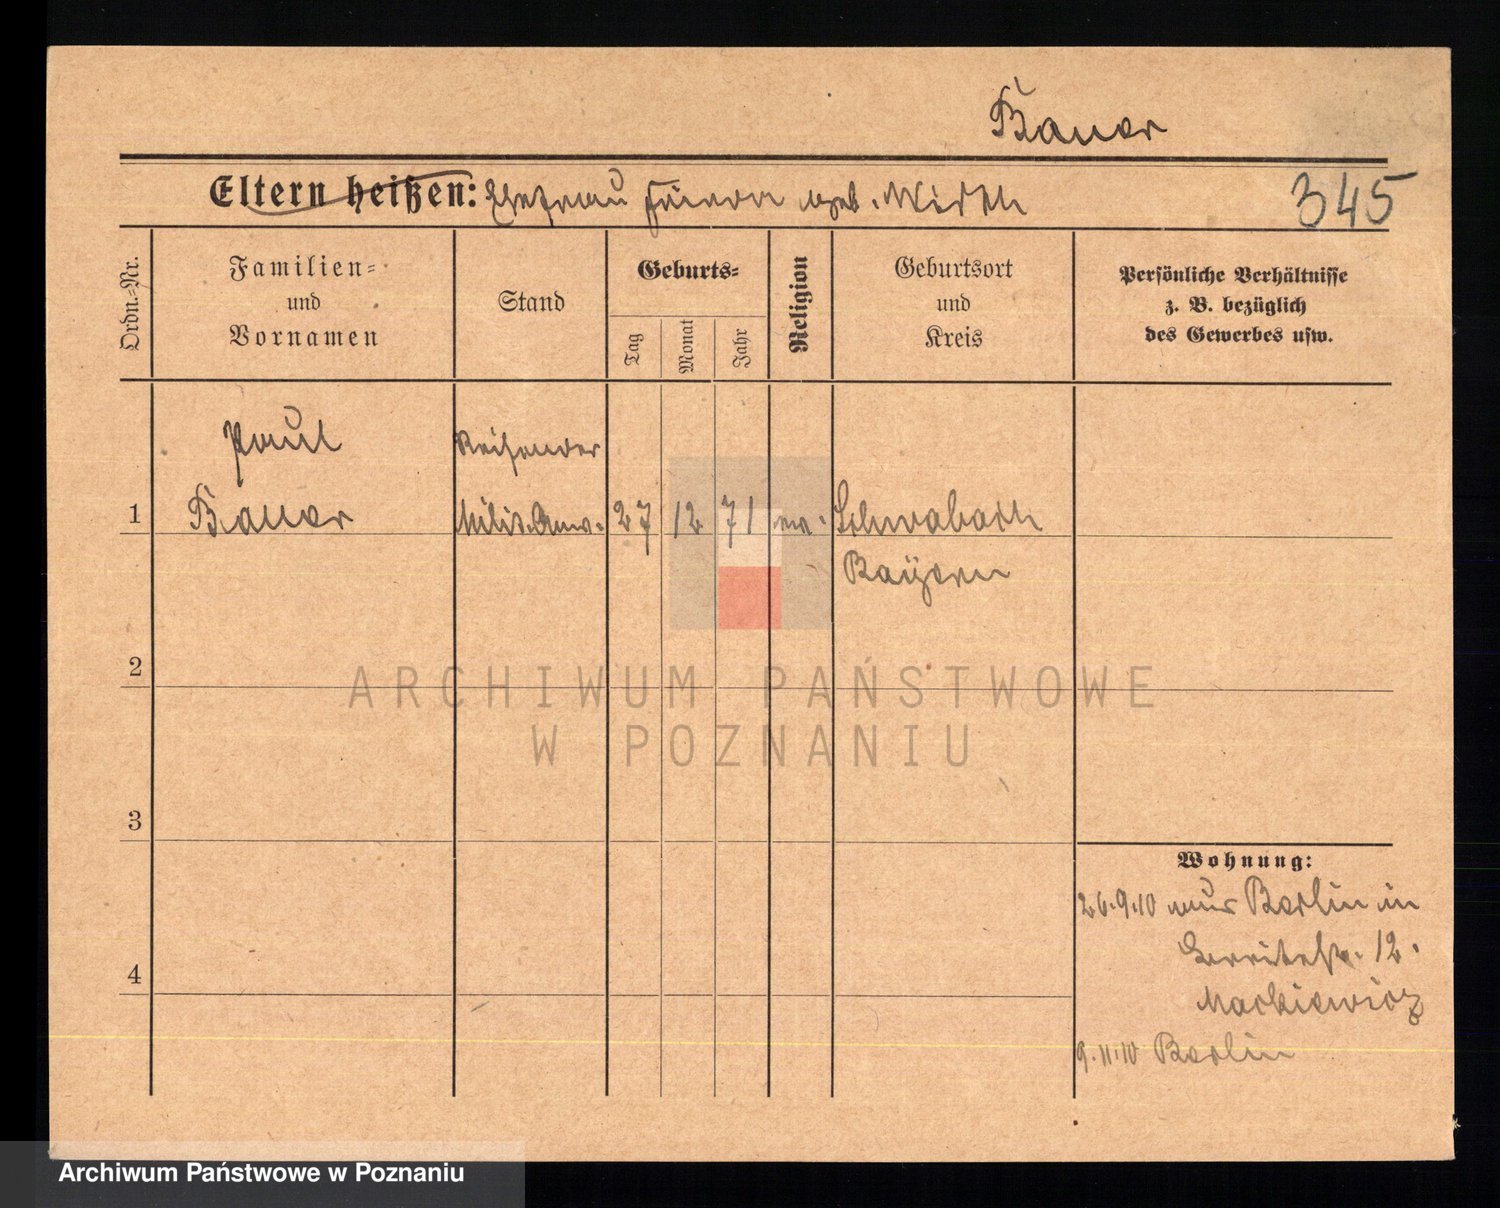 Bauer
Eltern heißen: Ehefrau geb. Wirth
345
Ordn.-Nr.
Familien-
und
Vornamen
Stand
Geburts-
Tag
Monat
Jahr
Religion
Geburtsort
und
Kreis
Persönliche Verhältnisse
z. B. bezüglich
des Gewerbes usw.
Paul
Reisender
1 Bauer Milit. Anw. 27 12 71 ev. Schwabach
Bayern
2
ARCHIWUM PAŃSTWOWE
W POZNANIU
3
Wohnung:
26.9.10 Berlin in
12.
4
Mackiewicz
9.11.10 Berlin
Archiwum Państwowe w Poznaniu